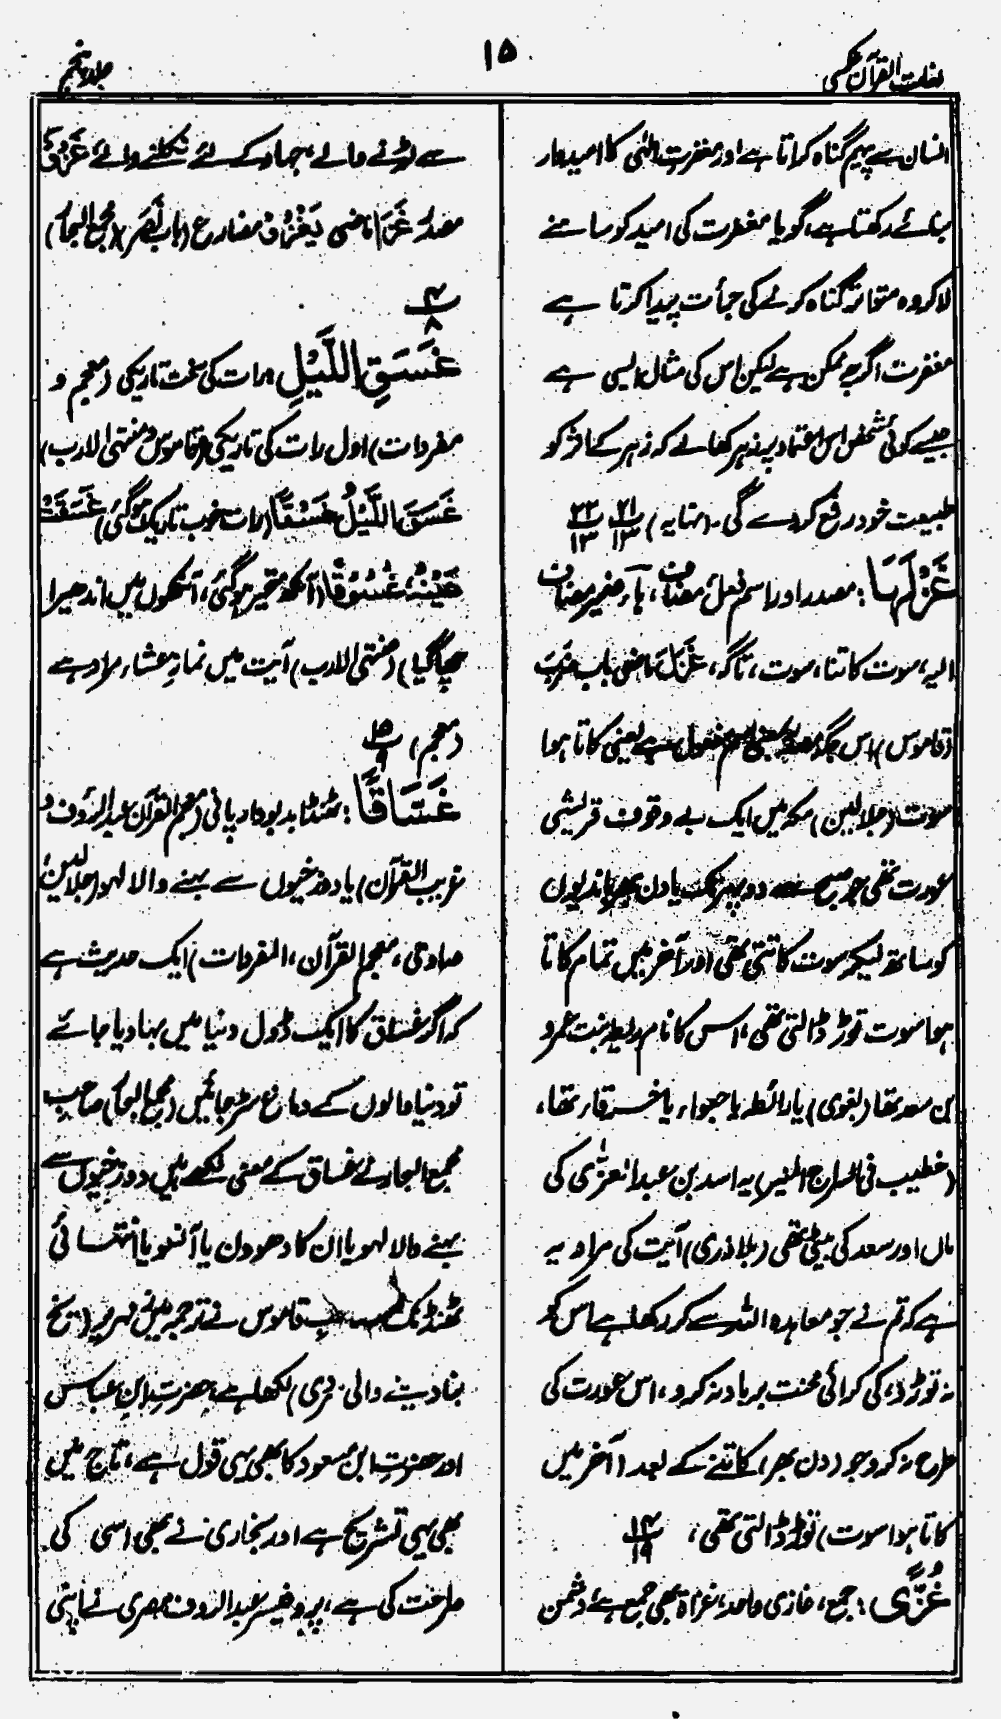 لغات القرآن عکسی
۱۵
جلد پنجم
انسان سے پیہم گناہ کراتا ہے اور مغفرتِ الٰہی کا امیدوار
بنائے رکھتا ہے، گویا مغفرت کی امید کو سامنے
لا کر وہ متواتر گناہ کرنے کی جرأت پیدا کرتا ہے
مغفرت اگرچہ ممکن ہے لیکن اس کی مثال ایسی ہے
جیسے کوئی شخص اس اعتماد پر زہر کھالے کہ زہر کے اثر کو
طبیعت خود رفع کر دے گی۔ (نہایہ) ۲۱/۱۳ ۲۲/۱۳
غَزْلَہَا: مصدر اور اسم فعل مضاف، ہاء ضمیر مضاف
الیہ، سوت کاتنا، سوت، تاگہ، غَزَلَ ماضی باب ضَرَبَ
(قاموس) اس جگہ مصدر بمعنی اسم مفعول ہے یعنی کاتا ہوا
سوت (جلالین) مکہ میں ایک بے وقوف قریشی
عورت تھی جو صبح سے دوپہر تک یا دن بھر باندیوں
کو ساتھ لیکر سوت کاتتی تھی اور آخر میں تمام کاتا
ہوا سوت توڑ ڈالتی تھی، اس کا نام ریطہ بنت عمرو
بن سعد تھا (بغوی) یا رائطہ یا حبواء یا خرقاء تھا،
(خطیب فی السراج المنیر) یہ اسد بن عبدالعزّٰی کی
ماں اور سعد کی بیٹی تھی (بلاذری) آیت کی مراد یہ
ہے کہ تم نے جو معاہدہ اللہ سے کر رکھا ہے اس کو
نہ توڑو، کی کرائی محنت برباد نہ کرو، اس عورت کی
طرح نہ کرو جو (دن بھر) کاتنے کے بعد (آخر میں
کاتا ہوا سوت) توڑ ڈالتی تھی، ۱۴/۱۹
غُزًّی: جمع، غازی واحد، غزاۃ بھی جمع ہے، دشمن
سے لڑنے والے جہاد کے لئے نکلنے والے غَزْوٌ
مصدر غَزَا ماضی یَغْزُوْ مضارع (باب نَصَرَ) (مجمع البحار)
۴/۸
غَسَقِ اللَّیْلِ: رات کی سخت تاریکی (معجم و
مفردات) اول رات کی تاریکی (قاموس و منتہی الارب)
غَسَقَ اللَّیْلُ غَسْقًا (رات خوب تاریک ہوگئی) غَسَقَتْ
عَیْنُہٗ غُسُوْقًا (آنکھ متحیر ہوگئی، آنکھوں میں اندھیرا
چھا گیا) (منتہی الارب) آیت میں نمازِ عشاء مراد ہے
(معجم) ۱۵/۹
غَسَّاقًا: ٹھنڈا بدبودار پانی (معجم القرآن عبدالرؤف و
غریب القرآن) یا دوزخیوں سے بہنے والا لہو (جلالین،
صاوی، معجم القرآن، المفردات) ایک حدیث ہے
کہ اگر غساق کا ایک ڈول دنیا میں بہا دیا جائے
تو دنیا والوں کے دماغ سڑ جائیں (مجمع البحار) صاحبِ
مجمع البحار نے غساق کے معنی لکھے ہیں دوزخیوں سے
بہنے والا لہو یا ان کا دھوون یا آنسو یا انتہائی
ٹھنڈک قاموس نے ترجمہ میں زمہریر (یخ
بنا دینے والی سردی) لکھا ہے، حضرت ابن عباس
اور حضرت ابن مسعود کا بھی یہی قول ہے، تاج میں
بھی یہی تشریح ہے اور بخاری نے بھی اسی کی
صراحت کی ہے، پروفیسر عبدالرؤف مصری نے اپنی